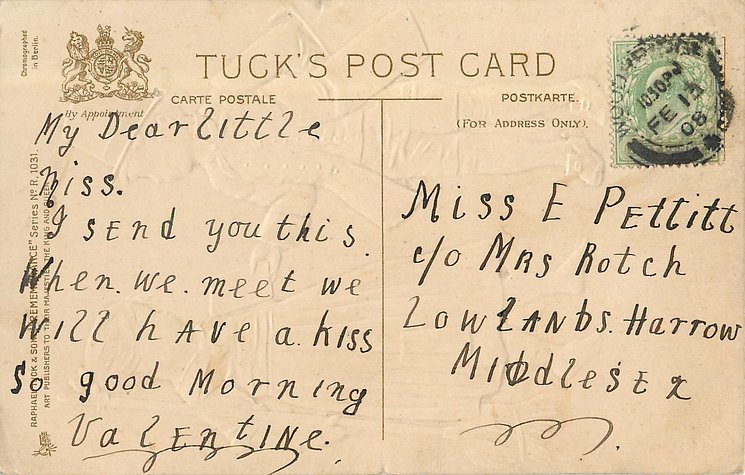 Chromographed
in Berlin.
By Appointment
TUCK'S POST CARD
CARTE POSTALE
POSTKARTE.
(FOR ADDRESS ONLY).
1030PM
FE 13
08
RAPHAEL TUCK & SONS "REMEMBRANCE" Series No R. 1031.
ART PUBLISHERS TO THEIR MAJESTIES THE KING AND QUEEN
My Dear little
Miss.
I send you this.
When. we. meet we
Will have a. kiss
So good Morning
Valentine.
Miss E Pettitt
c/o Mrs Rotch
Lowlands. Harrow
Middlesex